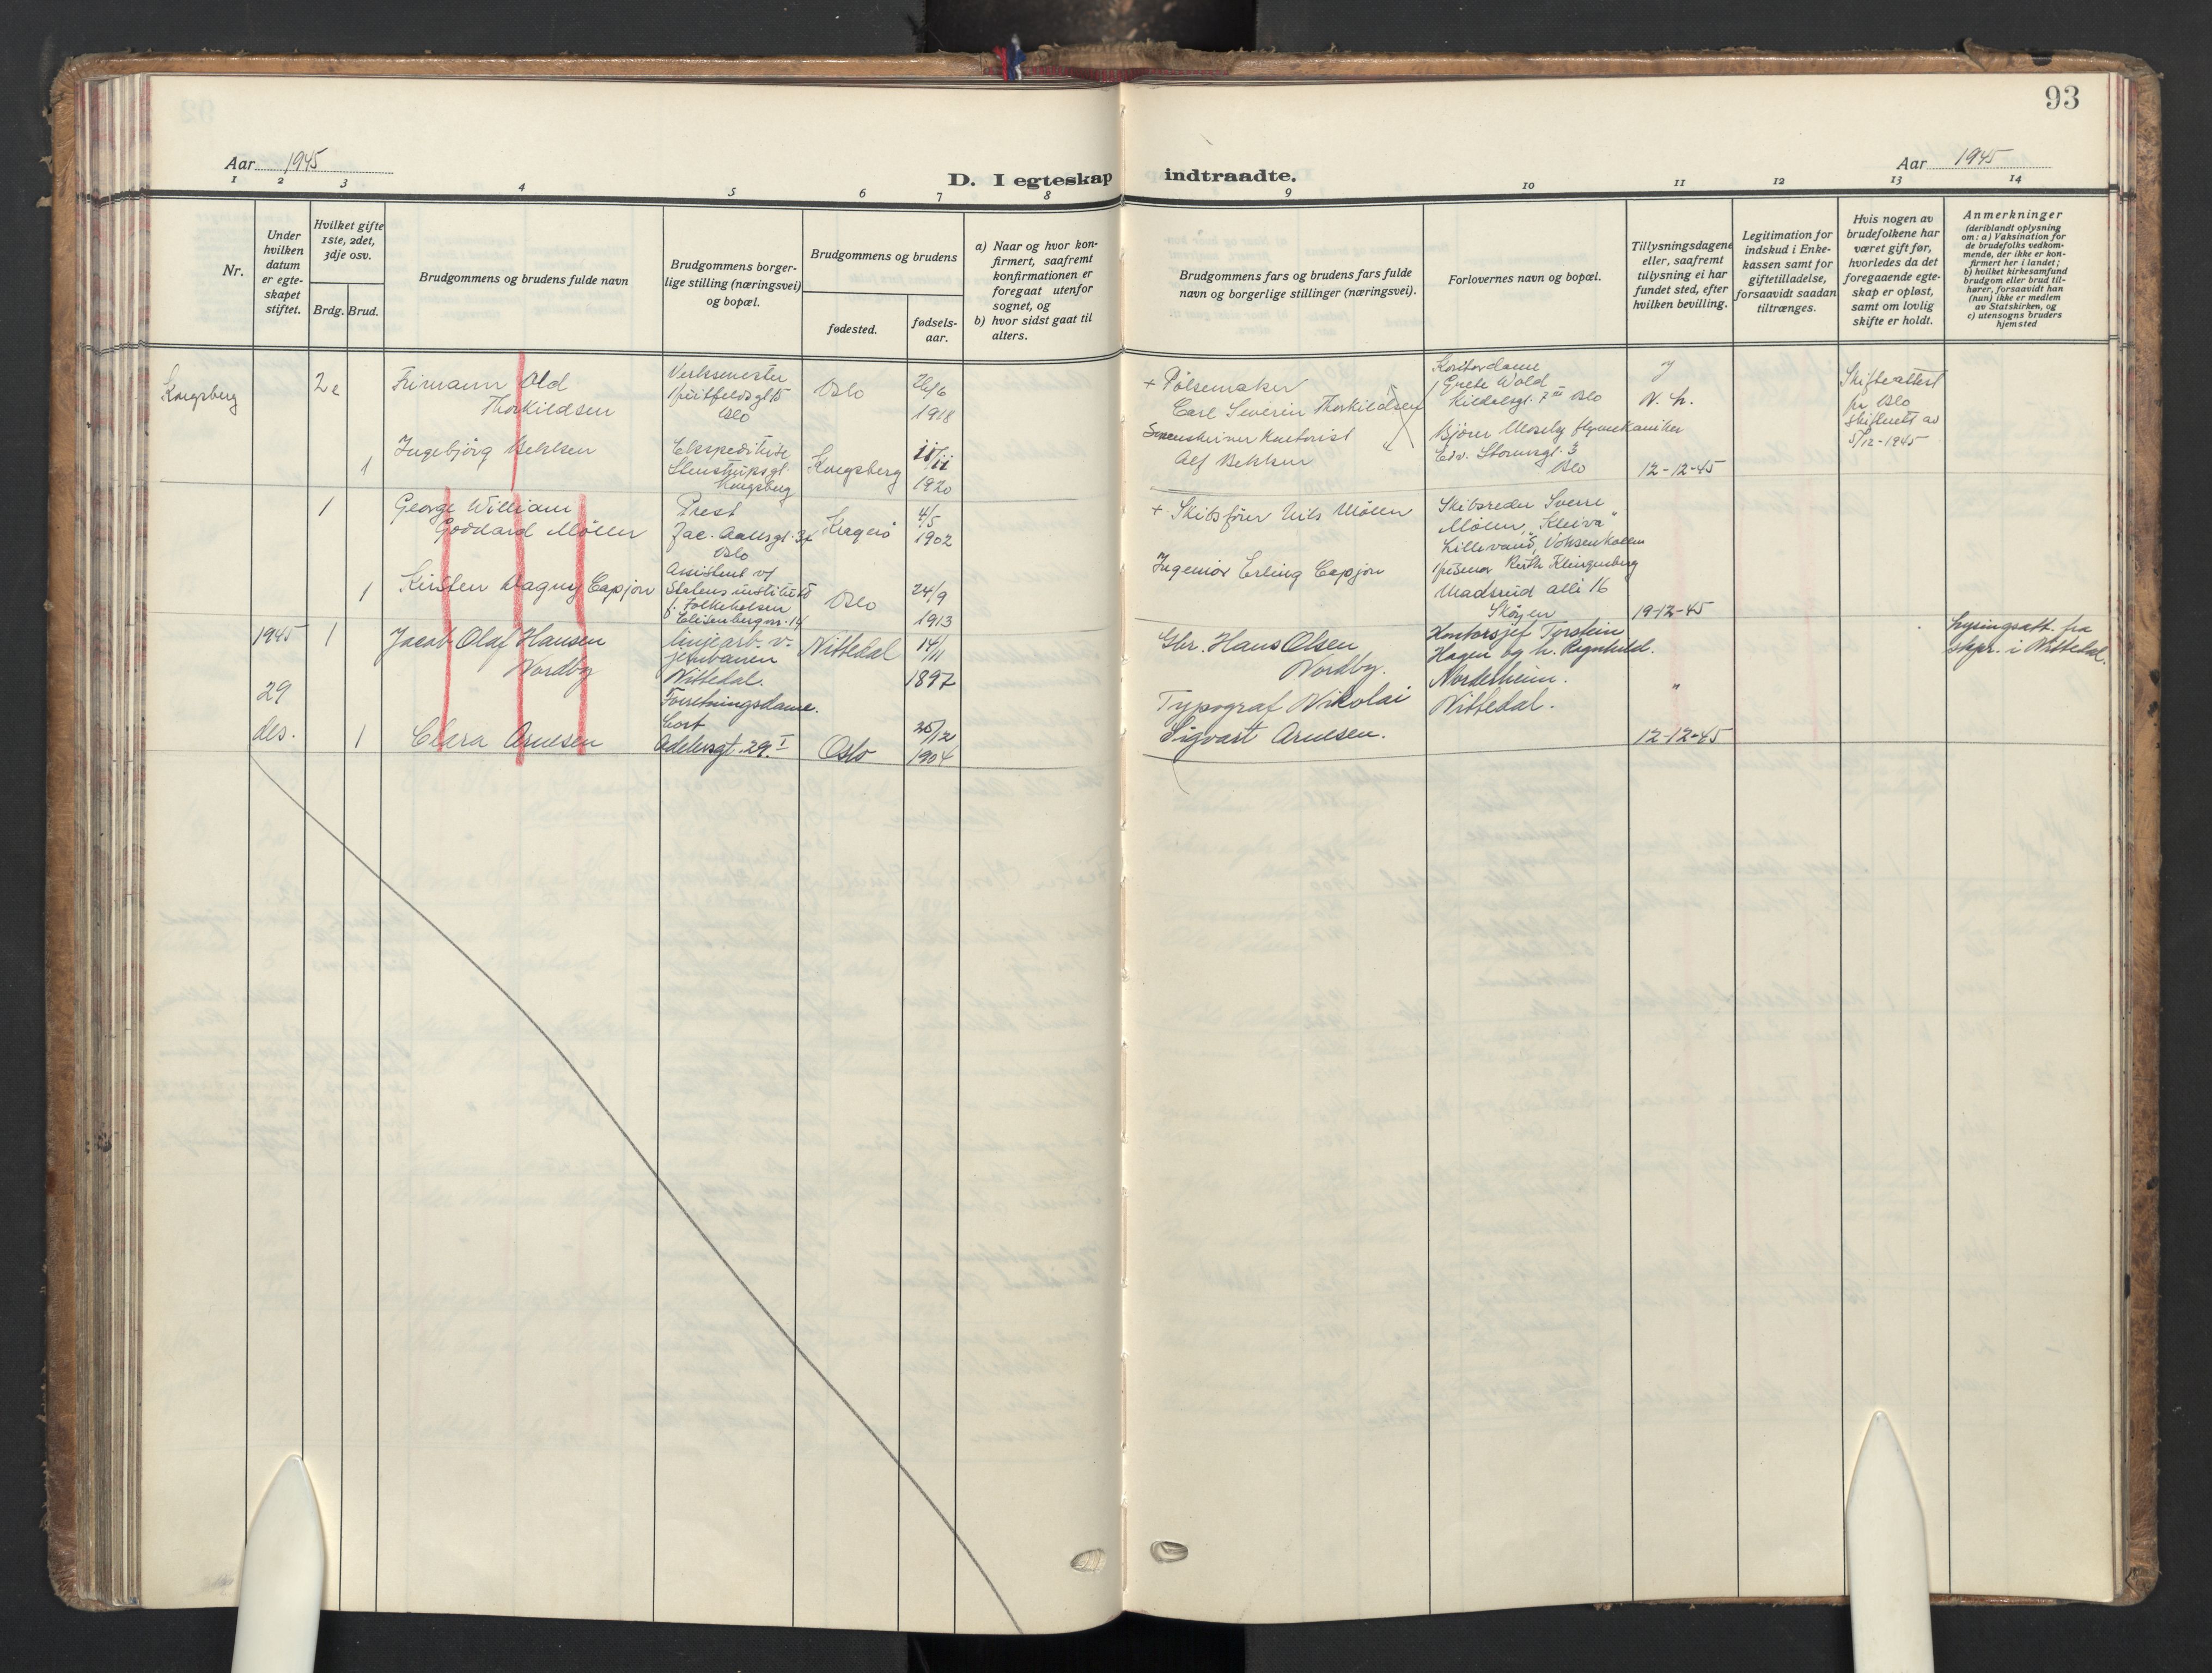 93
Aar 1945
D. I egteskap indtraadte.
Aar 1945
1 2 3 4 5 6 7 8 9 10 11 12 13 14
Nr.
Under hvilken datum er egteskapet stiftet.
Hvilket gifte 1ste, 2det, 3dje osv.
Brdg. Brud.
Brudgommens og brudens fulde navn
Brudgommens borgerlige stilling (næringsvei) og bopæl.
Brudgommens og brudens
fødested.
fødselsaar.
a) Naar og hvor konfirmert, saafremt konfirmationen er foregaat utenfor sognet, og
b) hvor sidst gaat til alters.
Brudgommens fars og brudens fars fulde navn og borgerlige stillinger (næringsvei).
Forlovernes navn og bopæl.
Tillysningsdagene eller, saafremt tillysning ei har fundet sted, efter hvilken bevilling.
Legitimation for indskud i Enkekassen samt for giftetilladelse, forsaavidt saadan tiltrænges.
Hvis nogen av brudefolkene har været gift før, hvorledes da det foregaaende egteskap er opløst, samt om lovlig skifte er holdt.
Anmerkninger
(deriblandt oplysning om: a) Vaksination for de brudefolks vedkommende, der ikke er konfirmert her i landet;
b) hvilket kirkesamfund brudgom eller brud tilhører, forsaavidt han (hun) ikke er medlem av Statskirken, og
c) utensogns bruders hjemsted
Kongsberg
2
Frimann Old
Thorkildsen
Verksmester
Oslo
Oslo
26/6
1918
+ Pølsemaker
Carl Severin Thorkildsen
Kontordame
Grete Wold
Oslo
Skifteattest
fra Oslo
skifterett av
5/12-1945
1
Ingebjørg Bekken
Ekspeditrise
Kongsberg
Kongsberg
11/11
1920
Kontorist
Alf Bekken
Bjørn Moseby flymekaniker
Edv. Stormsgt. 3
Oslo
12-12-45
1
George William
Goddard Møller
Prest
Jac. Aallsgt. 34
Oslo
Kragerø
4/5
1902
+ Skibsfører Nils Møller
Skibsreder Sverre
Møller, "Kleiva"
Lillevand, Voksenkollen
1
Kirsten Dagny Capjon
Assistent v/
Statens institutt
f. Folkehelsen
Elisenbergvn. 14
Oslo
24/9
1913
Ingeniør Erling Capjon
Ruth Klingenberg
Madserud alle 16
Skøyen
19-12-45
1945
29
des.
1
Jacob Olaf Hansen
Nordby
linjearb. v.
jernbanen
Nittedal.
Nittedal
14/11
1897
Gbr. Hans Olsen
Nordby.
Kontorsjef Torstein
Hagen og h. Ragnhild.
Nordeheim.
Nittedal.
Lysingsatt. fra
Sspr. i Nittedal.
1
Clara Arnesen
Forretningsdame.
Cort
Adelersgt. 29 I
Oslo
25/12
1904
Typograf Nikolai
Sigvart Arnesen.
"
12-12-45